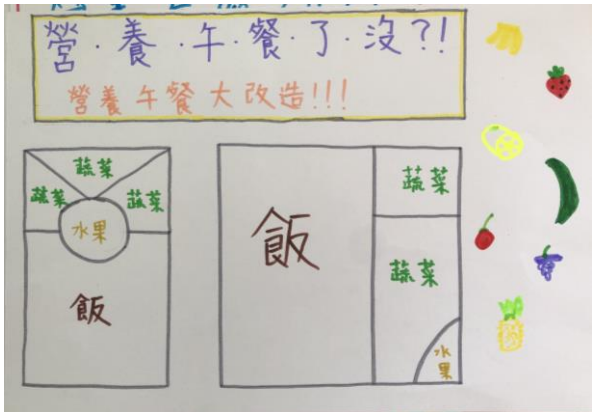 營·養·午·餐·了·沒?!
營養午餐大改造!!!
蔬菜
蔬菜
蔬菜
水果
飯
飯
蔬菜
蔬菜
水果